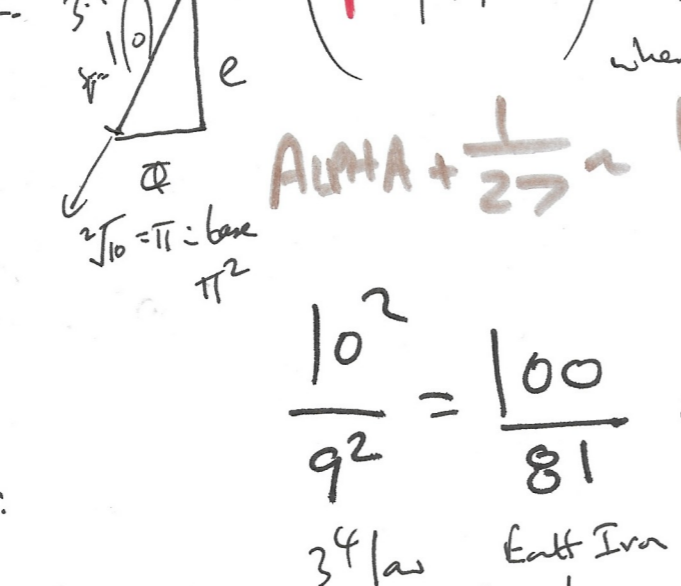 10
e
Φ
ALPHA + 1/27 ~
²√10 = π = base
π²
10²/9² = 100/81
3⁴ law